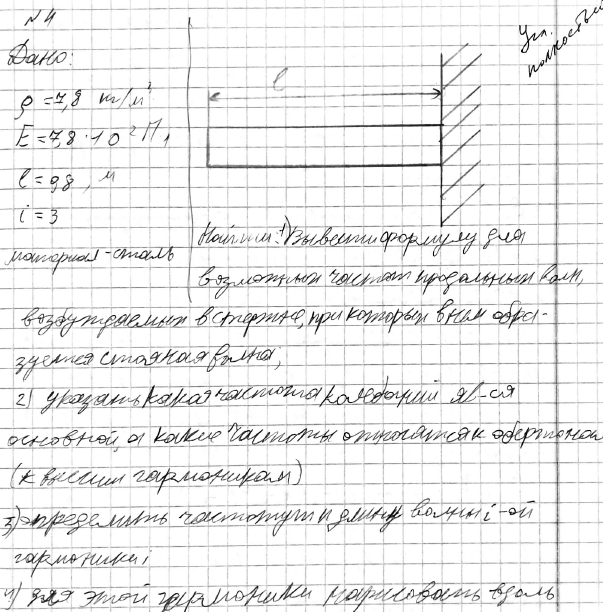 №4
Усл. полностью
Дано:
l
ρ = 7,8 кг/м³
E = 7,8·10² П
l = 98, м
i = 3
материал-сталь
Найти: 1) Вывести формулу для
возможных частот продольных волн,
возбуждаемых в стержне, при которых в нем обра-
зуется стоячая волна;
2) указать какая частота колебаний яв-ся
основной, а какие частоты относятся к обертонам
(к высшим гармоникам)
3) определить частоту и длину волны i-ой
гармоники;
4) для этой гармоники нарисовать вдоль